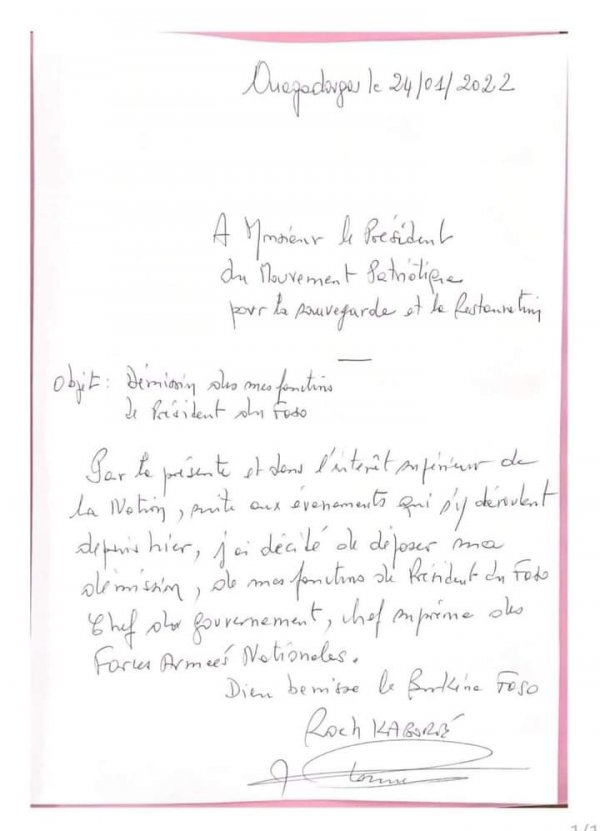 Ouagadougou le 24/01/2022
A Monsieur le Président
du Mouvement Patriotique
pour la sauvegarde et la Restauration
Objet : Démission des mes fonctions
de Président du Faso
Par la présente et dans l'intérêt supérieur de
la Nation, suite aux évenements qui s'y déroulent
depuis hier, j'ai décidé de déposer ma
démission, de mes fonctions de Président du Faso
Chef du gouvernement, chef suprême des
Forces Armées Nationales.
Dieu benisse le Burkina Faso
Roch KABORÉ
1/1